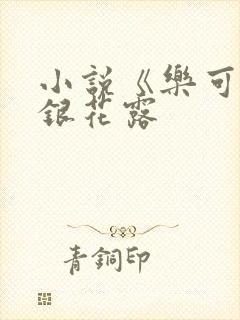 小說《樂可
銀花露
青銅印